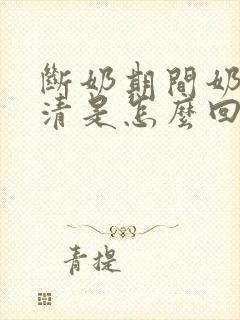 斷奶期間奶
清是怎麼回
青提